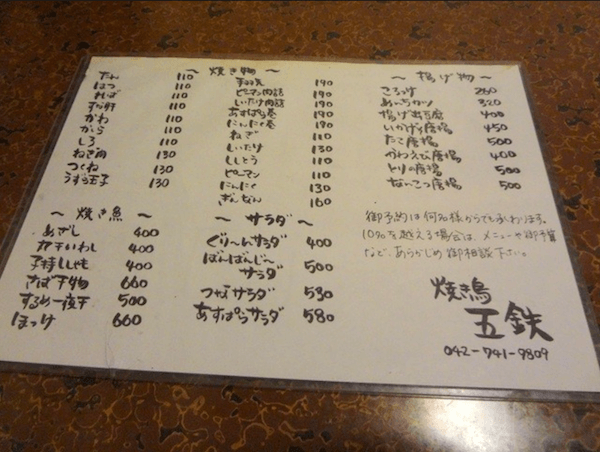 ～ 焼き物 ～
たん 110
はつ 110
ればー 110
すな肝 110
かわ 110
から 110
しろ 110
ねぎ肉 130
つくね 130
うずら玉子 130
ピーマン肉詰 190
しいたけ肉詰 190
あすぱら巻 190
にんにく巻 190
ねぎ 110
しいたけ 130
ししとう 110
ピーマン 110
にんにく 130
ぎんなん 160
～ 揚げ物 ～
ころっけ 260
めんちかつ 320
揚げ出豆腐 400
いかげそ唐揚 450
たこ唐揚 500
かわえび唐揚 400
とりの唐揚 500
なんこつ唐揚 500
～ 焼き魚 ～
めざし 400
カタいわし 400
子持ししゃも 400
さば干物 660
するめ一夜干 500
ほっけ 660
～ サラダ ～
ぐり～んサラダ 400
ばーんばんじ～サラダ 500
つなサラダ 530
あすぱらサラダ 580
御予約は何名様からでも承わります。
10名を越える場合は、メニューや御予算
など、あらかじめ御相談下さい。
焼き鳥
五鉄
042-741-9809